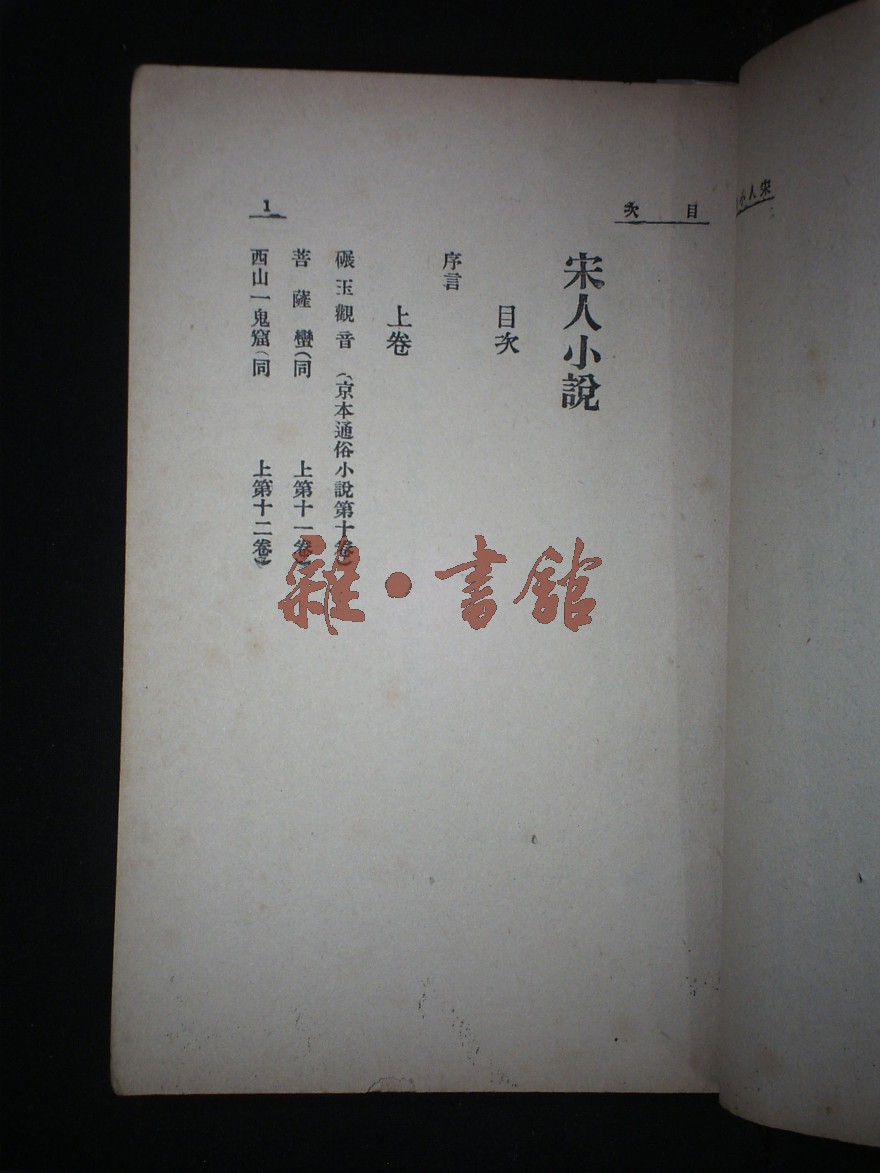 目次
宋人小說
目次
序言
上卷
碾玉觀音(京本通俗小說第十卷)
菩薩蠻(同上第十一卷)
西山一鬼窟(同上第十二卷)
1
雜·書館